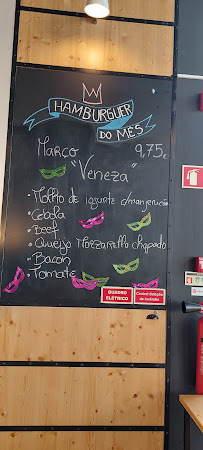 HAMBURGUER
DO MÊS
Março 9,75€
"Veneza"
• Molho de iogurte c/manjericão
• Cebola
• Beef
• Queijo Mozzarella chapado
• Bacon
• Tomate
QUADRO
ELÉTRICO
Central deteção
de incêndio